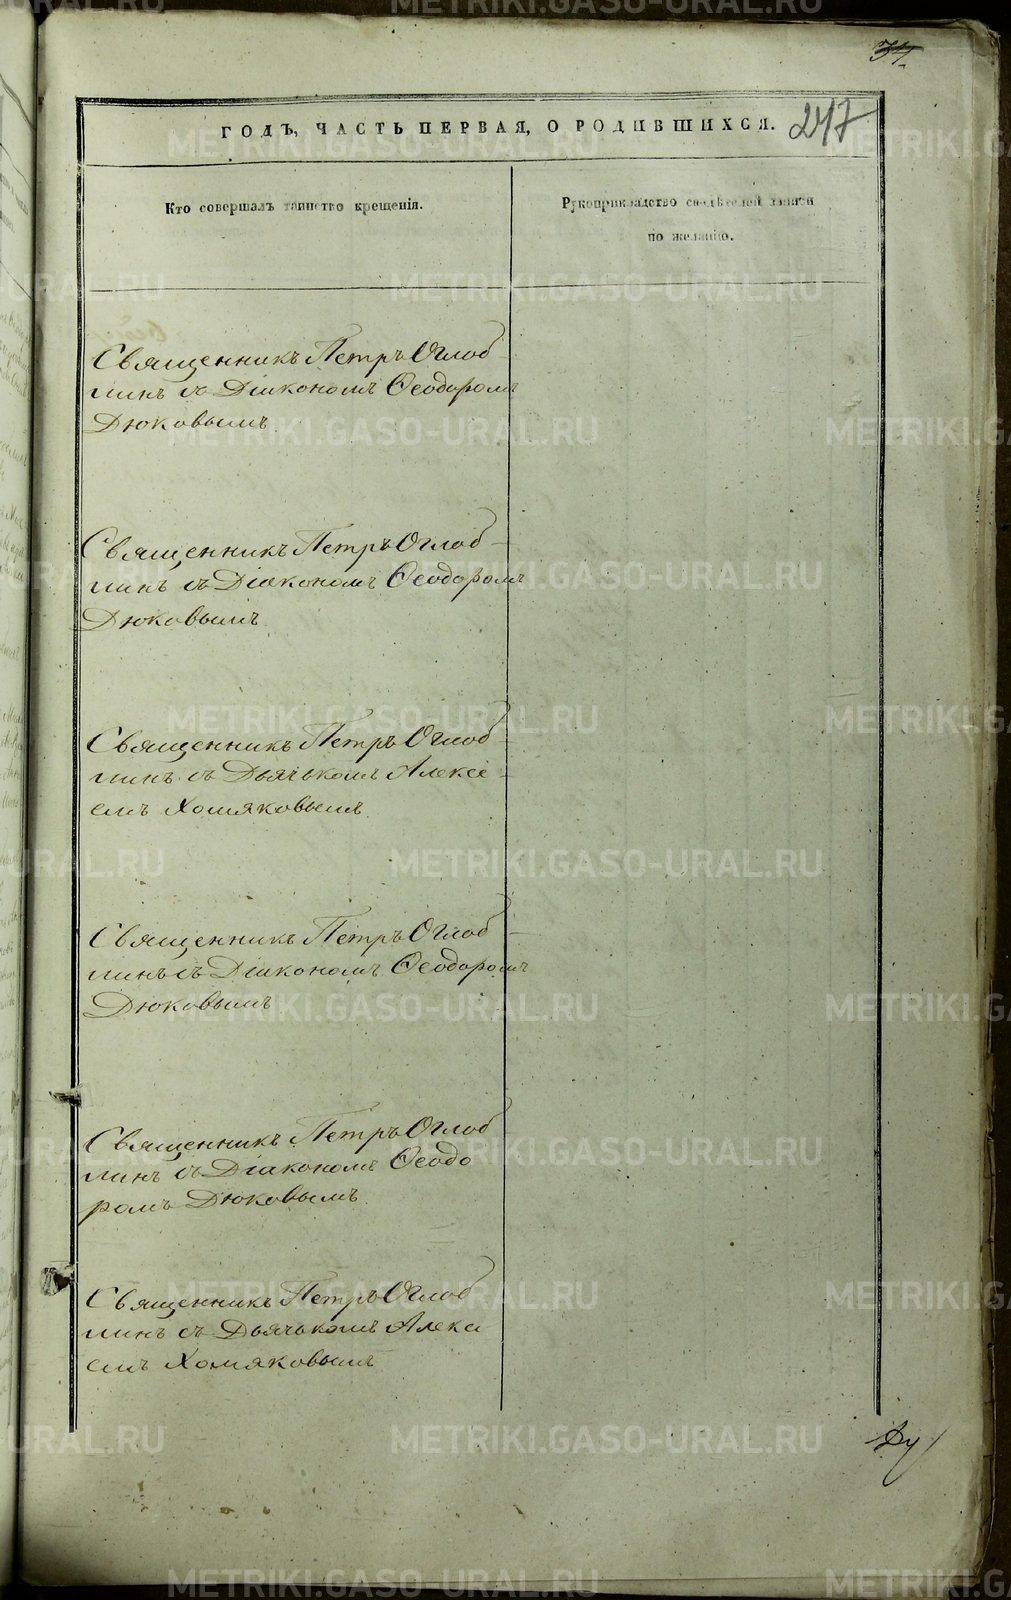 37
247
ГОДЪ, ЧАСТЬ ПЕРВАЯ, О РОДИВШИХСЯ.
Кто совершалъ таинство крещенія.
Рукоприкладство свидѣтелей записи
по желанію.
Священникъ Петръ Оглоб-
линъ съ Діакономъ Ѳеодоромъ
Дюковымъ
Священникъ Петръ Оглоб-
линъ съ Діакономъ Ѳеодоромъ
Дюковымъ
Священникъ Петръ Оглоб-
линъ съ Дьячькомъ Алексѣ-
емъ Хомяковымъ
Священникъ Петръ Оглоб-
линъ съ Діакономъ Ѳеодоромъ
Дюковымъ
Священникъ Петръ Оглоб
линъ съ Діакономъ Ѳеодо
ромъ Дюковымъ
Священникъ Петръ Оглоб
линъ съ Дьячькомъ Алексѣ
емъ Хомяковымъ
METRIKI.GASO-URAL.RU